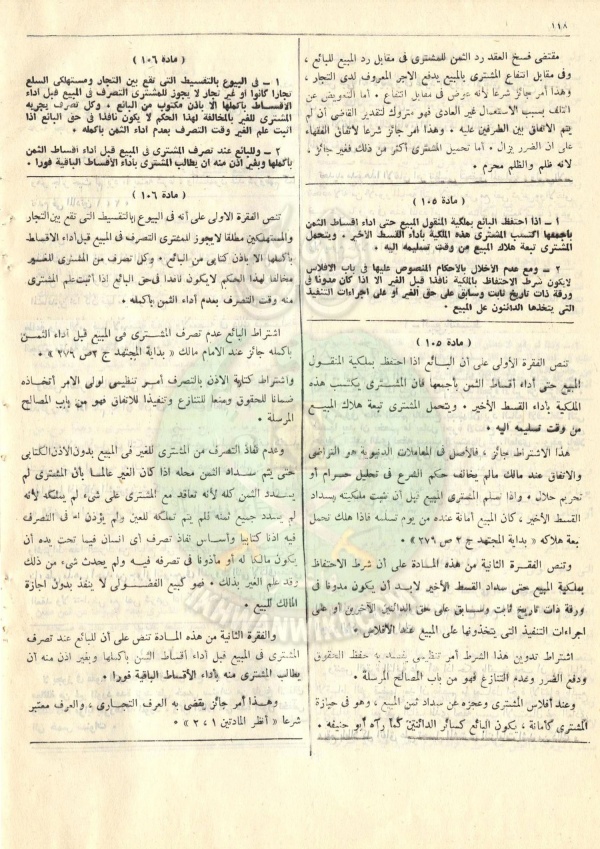 ١١٨
مقتضى فسخ العقد رد الثمن للمشترى فى مقابل رد المبيع للبائع ،
وفى مقابل انتفاع المشترى بالمبيع يدفع الاجر المعروف لدى التجار ،
وهذا أمر جائز شرعا لأنه عوض فى مقابل انتفاع ٠ أما التعويض عن
التلف بسبب الاستعمال غير العادى فهو متروك لتقدير القاضى ان لم
يتم الاتفاق بين الطرفين عليه ٠ وهذا أمر جائز شرعا لاتفاق الفقهاء
على ان الضرر يزال ٠ أما تحميل المشترى أكثر من ذلك فغير جائز ،
لانه ظلم والظلم محرم ٠
( مادة ١٠٥ )
١ – اذا احتفظ البائع بملكية المنقول المبيع حتى أداء أقساط الثمن
بأجمعها اكتسب المشترى هذه الملكية بأداء القسط الأخير ٠ ويتحمل
المشترى تبعة هلاك المبيع من وقت تسليمه اليه ٠
٢ – ومع عدم الاخلال بالأحكام المنصوص عليها فى باب الافلاس
لايكون شرط الاحتفاظ بالملكية نافذا قبل الغير الا اذا كان مدونا فى
ورقة ذات تاريخ ثابت وسابق على حق الغير أو على اجراءات التنفيذ
التى يتخذها الدائنون على المبيع ٠
( مادة ١٠٥ )
تنص الفقرة الأولى على أن البائع اذا احتفظ بملكية المنقول
المبيع حتى أداء أقساط الثمن بأجمعها فان المشترى يكتسب هذه
الملكية بأداء القسط الأخير ٠ ويتحمل المشترى تبعة هلاك المبيع
من وقت تسليمه اليه ٠
هذا الاشتراط جائز ، فالأصل فى المعاملات الدنيوية هو التراضى
والاتفاق عند مالك مالم يخالف حكم الشرع فى تحليل حرام أو
تحريم حلال ٠ واذا تسلم المشترى المبيع قبل أن تثبت ملكيته بسداد
القسط الأخير ، كان المبيع أمانة عنده من يوم تسلمه فاذا هلك تحمل
تبعة هلاكه « بداية المجتهد ج ٢ ص ٢٧٩ » ٠
وتنص الفقرة الثانية من هذه المادة على أن شرط الاحتفاظ
بملكية المبيع حتى سداد القسط الأخير لابد أن يكون مدونا فى
ورقة ذات تاريخ ثابت وسابق على حق الدائنين الآخرين أو على
اجراءات التنفيذ التى يتخذونها على المبيع عند الافلاس ٠
اشتراط تدوين هذا الشرط أمر تنظيمى يقصد به حفظ الحقوق
ودفع الضرر وعدم التنازع فهو من باب المصالح المرسلة ٠
وعند أفلاس المشترى وعجزه عن سداد ثمن المبيع ، وهو فى حيازة
المشترى كأمانة ، يكون البائع كسائر الدائنين كما رآه أبو حنيفه ٠
( مادة ١٠٦ )
١ – فى البيوع بالتقسيط التى تقع بين التجار ومستهلكى السلع
تجارا كانوا أو غير تجار لا يجوز للمشترى التصرف فى المبيع قبل أداء
الأقساط بأكملها الا باذن مكتوب من البائع ٠ وكل تصرف يجريه
المشترى للغير بالمخالفة لهذا الحكم لا يكون نافذا فى حق البائع اذا
أثبت علم الغير وقت التصرف بعدم أداء الثمن بأكمله ٠
٢ – وللبائع عند تصرف المشترى فى المبيع قبل أداء أقساط الثمن
بأكملها وبغير اذن منه ان يطالب المشترى بأداء الأقساط الباقية فورا ٠
( مادة ١٠٦ )
تنص الفقرة الاولى على أنه فى البيوع بالتقسيط التى تقع بين التجار
والمستهلكين مطلقا لايجوز للمشترى التصرف فى المبيع قبل أداء الاقساط
بأكملها الا باذن كتابى من البائع ٠ وكل تصرف من المشترى للغير
مخالفا لهذا الحكم لايكون نافذا فى حق البائع إذا أثبت علم المشترى
منه وقت التصرف بعدم أداء الثمن بأكمله ٠
اشتراط البائع عدم تصرف المشترى فى المبيع قبل أداء الثمن
بأكمله جائز عند الامام مالك « بداية المجتهد ج ٢ ص ٢٧٩ » ٠
واشتراط كتابة الاذن بالتصرف أمر تنظيمى لولى الامر أتخاذه
ضمانا للحقوق ومنعا للتنازع وتنفيذا للاتفاق فهو من باب المصالح
المرسلة ٠
وعدم نفاذ التصرف من المشترى للغير فى المبيع بدون الاذن الكتابى
حتى يتم سداد الثمن محله اذا كان الغير عالما بأن المشترى لم
يسدد الثمن كله لأنه تعاقد مع المشترى على شىء لم يملكه لأنه
لم يسدد جميع ثمنه فلم يتم تملكه للعين ولم يؤذن له فى التصرف
فيه اذنا كتابيا وأساس نفاذ تصرف أى انسان فيما تحت يده أن
يكون مالكا له أو مأذونا فى تصرفه فيه ولم يحدث شىء من ذلك
وقد علم الغير بذلك ٠ فهو كبيع الفضولى لا ينفذ بدون اجازة
المالك للمبيع ٠
والفقرة الثانية من هذه المادة تنص على أن للبائع عند تصرف
المشترى فى المبيع قبل أداء أقساط الثمن بأكملها وبغير اذن منه أن
يطالب المشترى منه بأداء الأقساط الباقية فورا ٠
وهذا أمر جائز يقضى به العرف التجارى ، والعرف معتبر
شرعا « أنظر المادتين ١ ، ٢ » ٠